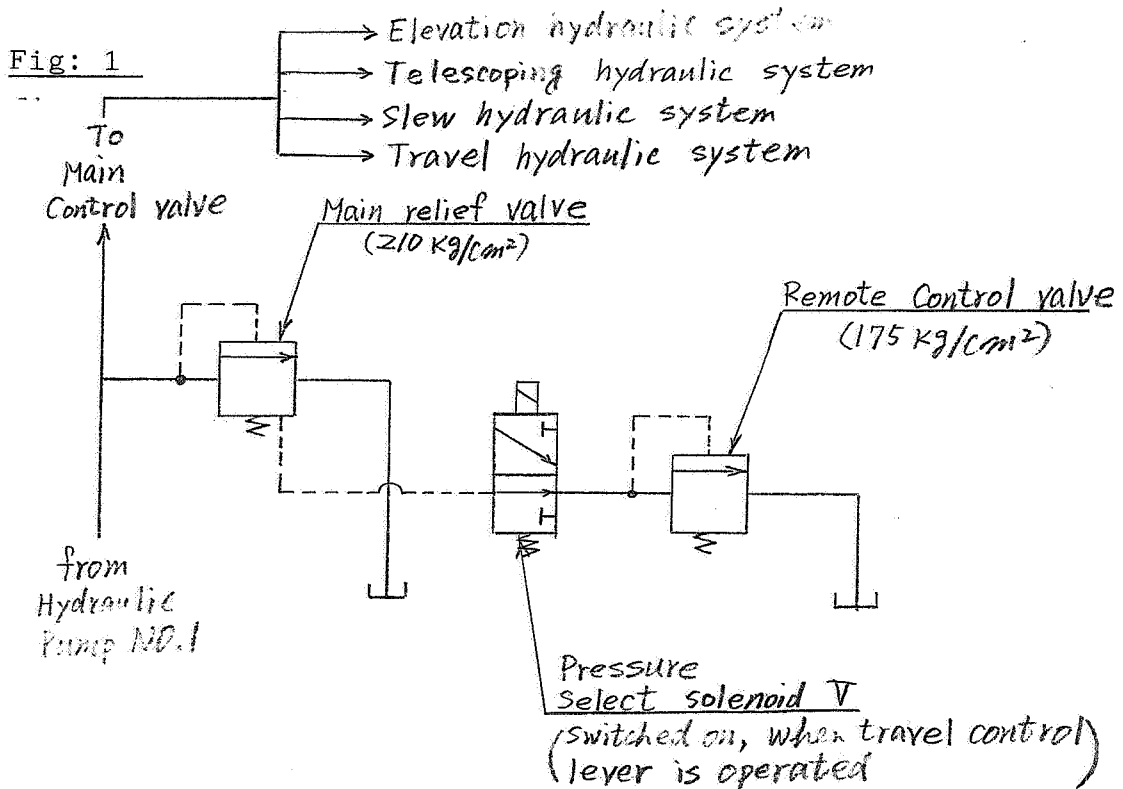 Fig: 1
Elevation hydraulic system
Telescoping hydraulic system
Slew hydraulic system
Travel hydraulic system
To
Main
Control valve
Main relief valve
(210 Kg/cm²)
Remote Control valve
(175 Kg/cm²)
from
Hydraulic
Pump NO.1
Pressure
Select solenoid V
(switched on, when travel control
lever is operated)